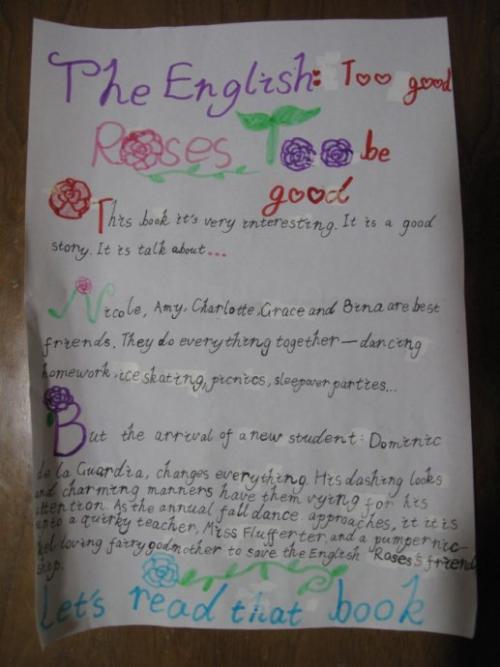 The English: Too good
Roses Too be
good
This book it's very interesting. It is a good
story. It is talk about...
Nicole, Amy, Charlotte, Grace and Bina are best
friends. They do everything together — dancing
homework, ice skating, picnics, sleepover parties...
But the arrival of a new student: Dominic
de la Guardia, changes everything. His dashing looks
and charming manners have them vying for his
attention. As the annual fall dance approaches, it it is
unto a quirky teacher, Miss Flufferter, and a pumpernic-
kel loving fairy godmother to save the English Roses's friend
ship.
Let's read that book